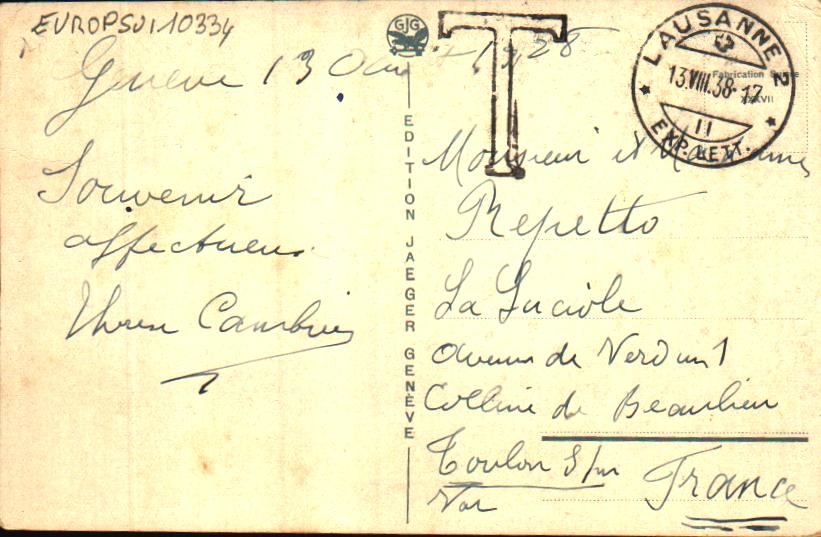 EUROPSUI10334
GJG
T
LAUSANNE 2
13.VIII.38-17
11
EXP. LETT.
Fabrication Suisse
Genève 13 Août 1938
Souvenir
affectueux
EDITION JAEGER GENÈVE
Monsieur et Madame
Repetto
La Luciole
Avenue de Verdun 1
Colline de Beaulieu
Toulon s/m
Var
France